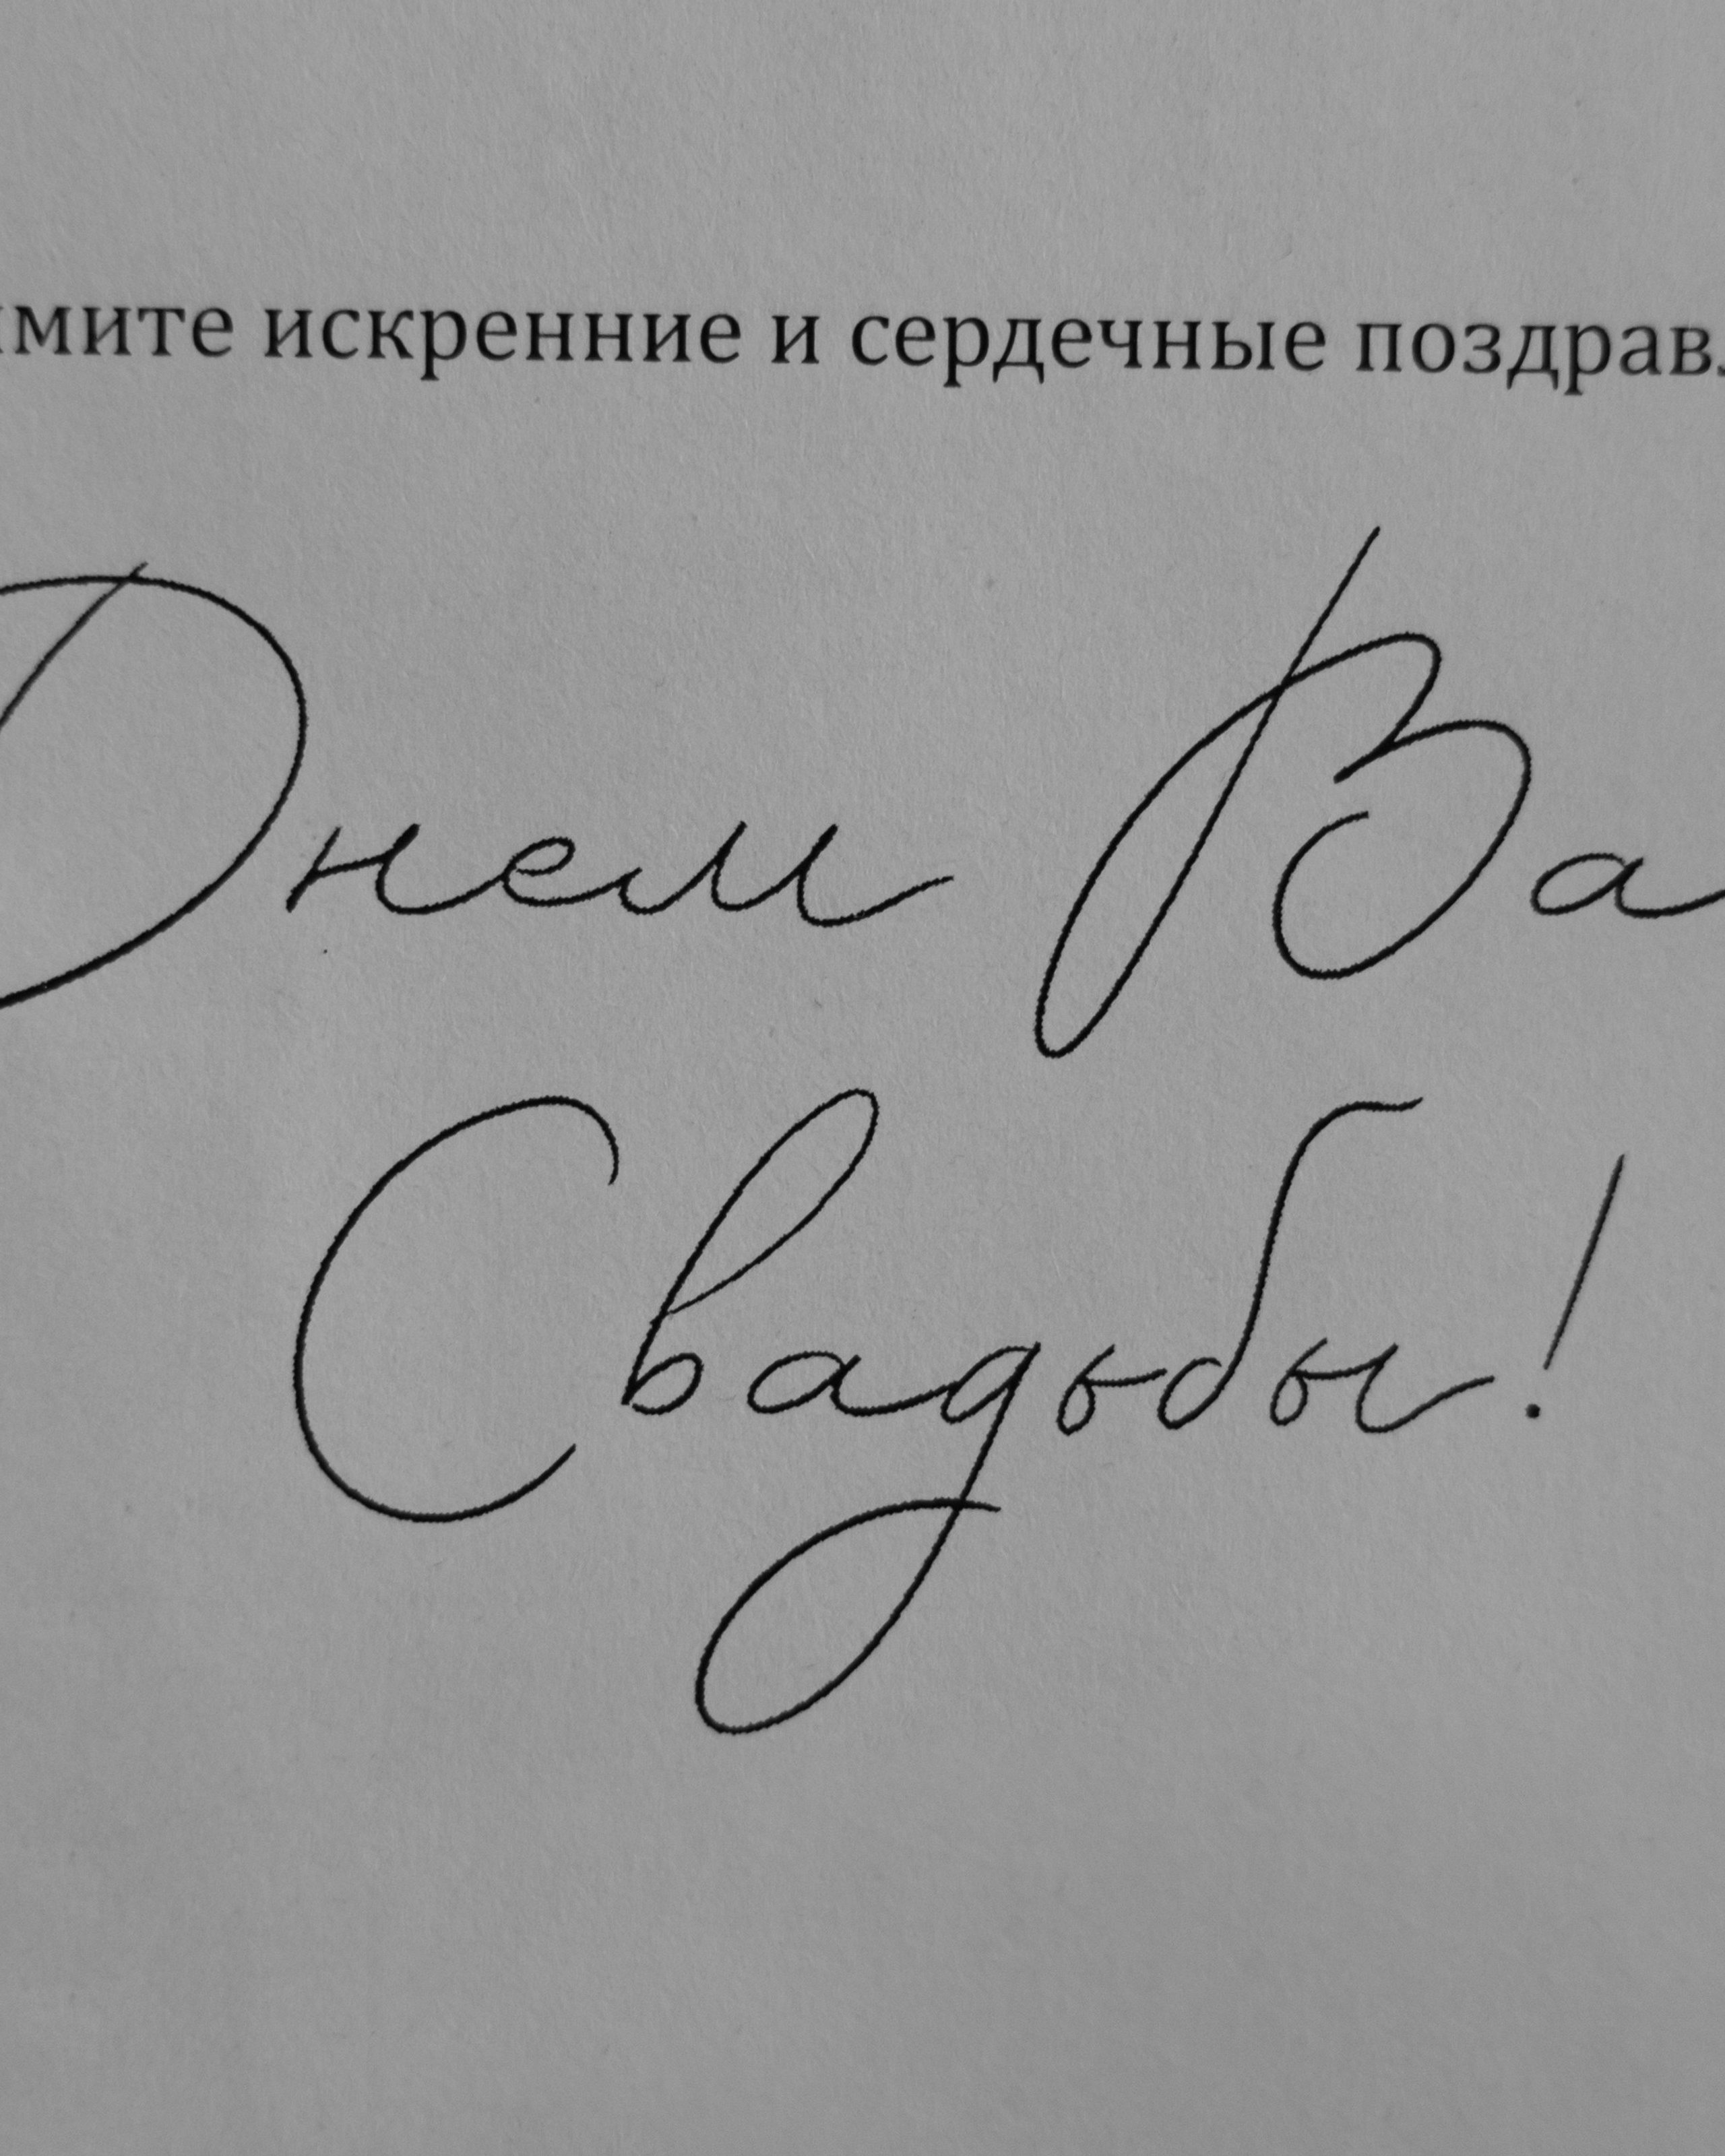 мите искренние и сердечные поздрав
Днем Ва
Свадьбы!